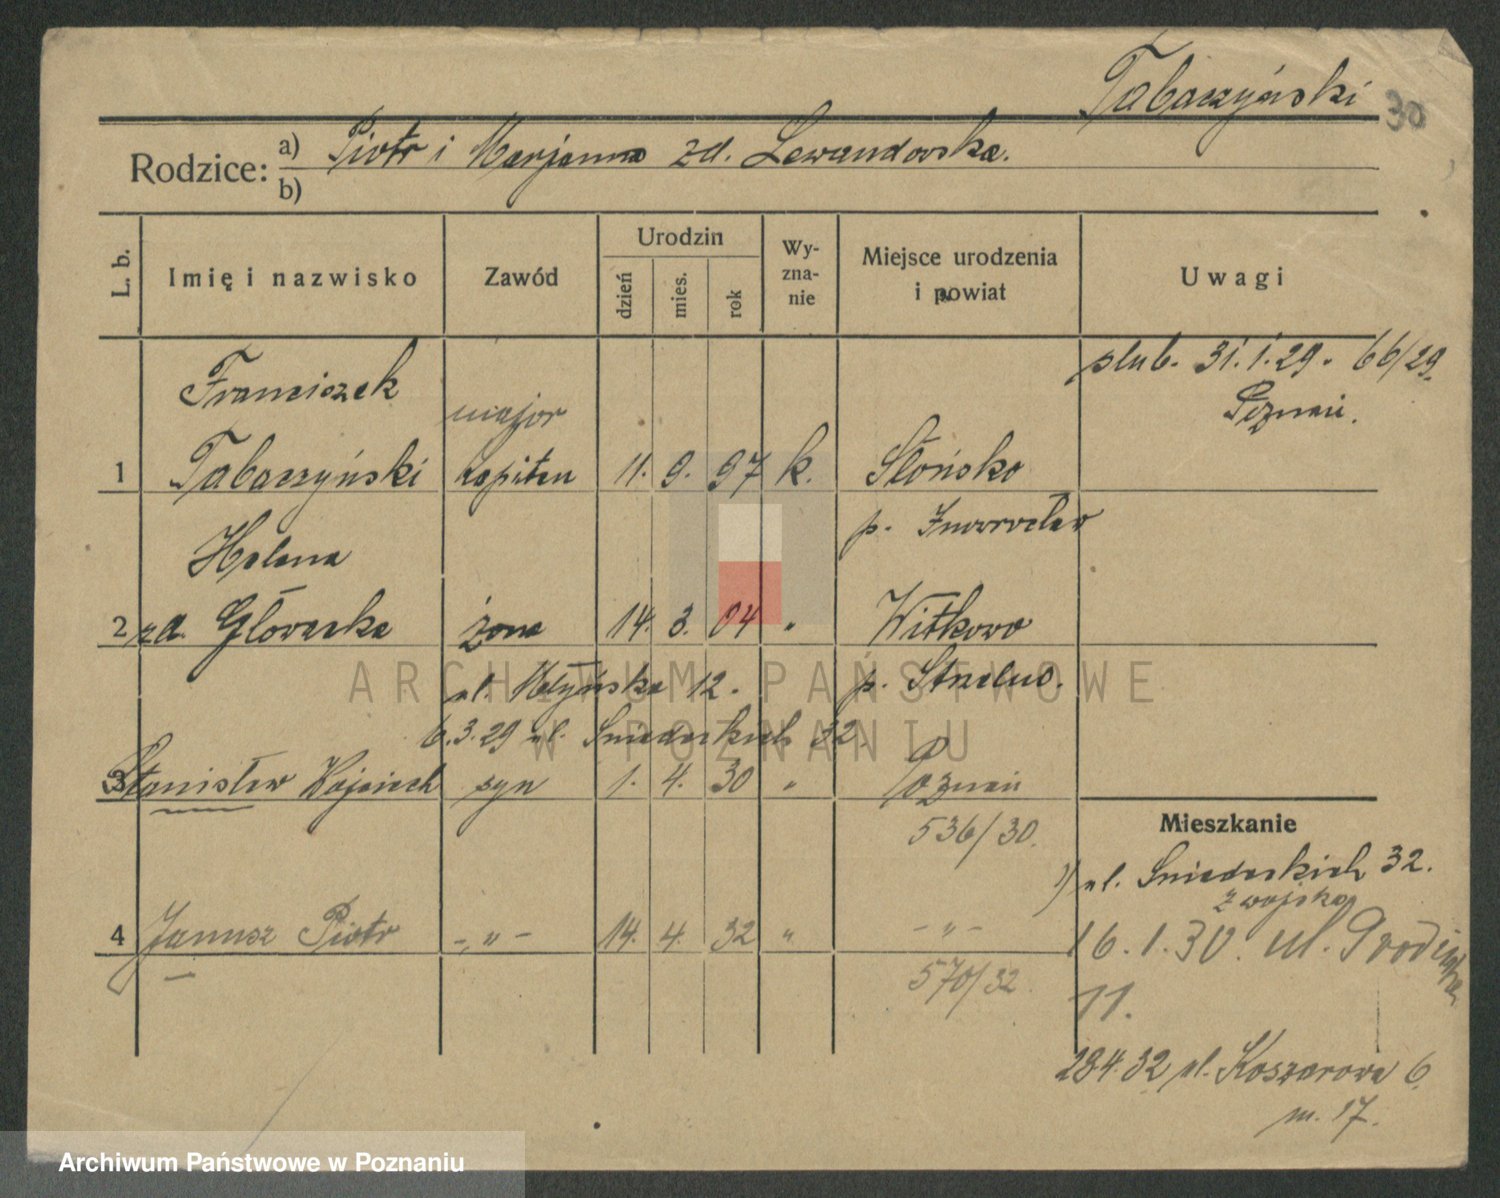 Tabaczyński
30
Rodzice: a) Piotr i Marjanna zd. Lewandowska.
b)
L. b.
Imię i nazwisko
Zawód
Urodzin
dzień
mies.
rok
Wy-
zna-
nie
Miejsce urodzenia
i powiat
Uwagi
ślub. 31.1.29. 66/29.
Poznań.
Franciszek
major
1 Tabaczyński kapitan 11. 9. 97 k. Słońsko
p. Inowrocław
Helena
2 zd. Głowacka żona 14. 3. 04 " Witkowo
ul. Młyńska 12. p. Strzelno.
6.3.29 ul. Śniadeckich 32.
3 Stanisław Wojciech syn 1. 4. 30 " Poznań
536/30.
4 Janusz Piotr -„- 14. 4. 32 " -„-
570/32.
Mieszkanie
1) ul. Śniadeckich 32.
z wojska
16.1.30. ul. Grodziska
11.
28.4.32 ul. Koszarowa 6.
m. 17.
ARCHIWUM PAŃSTWOWE
W POZNANIU
Archiwum Państwowe w Poznaniu